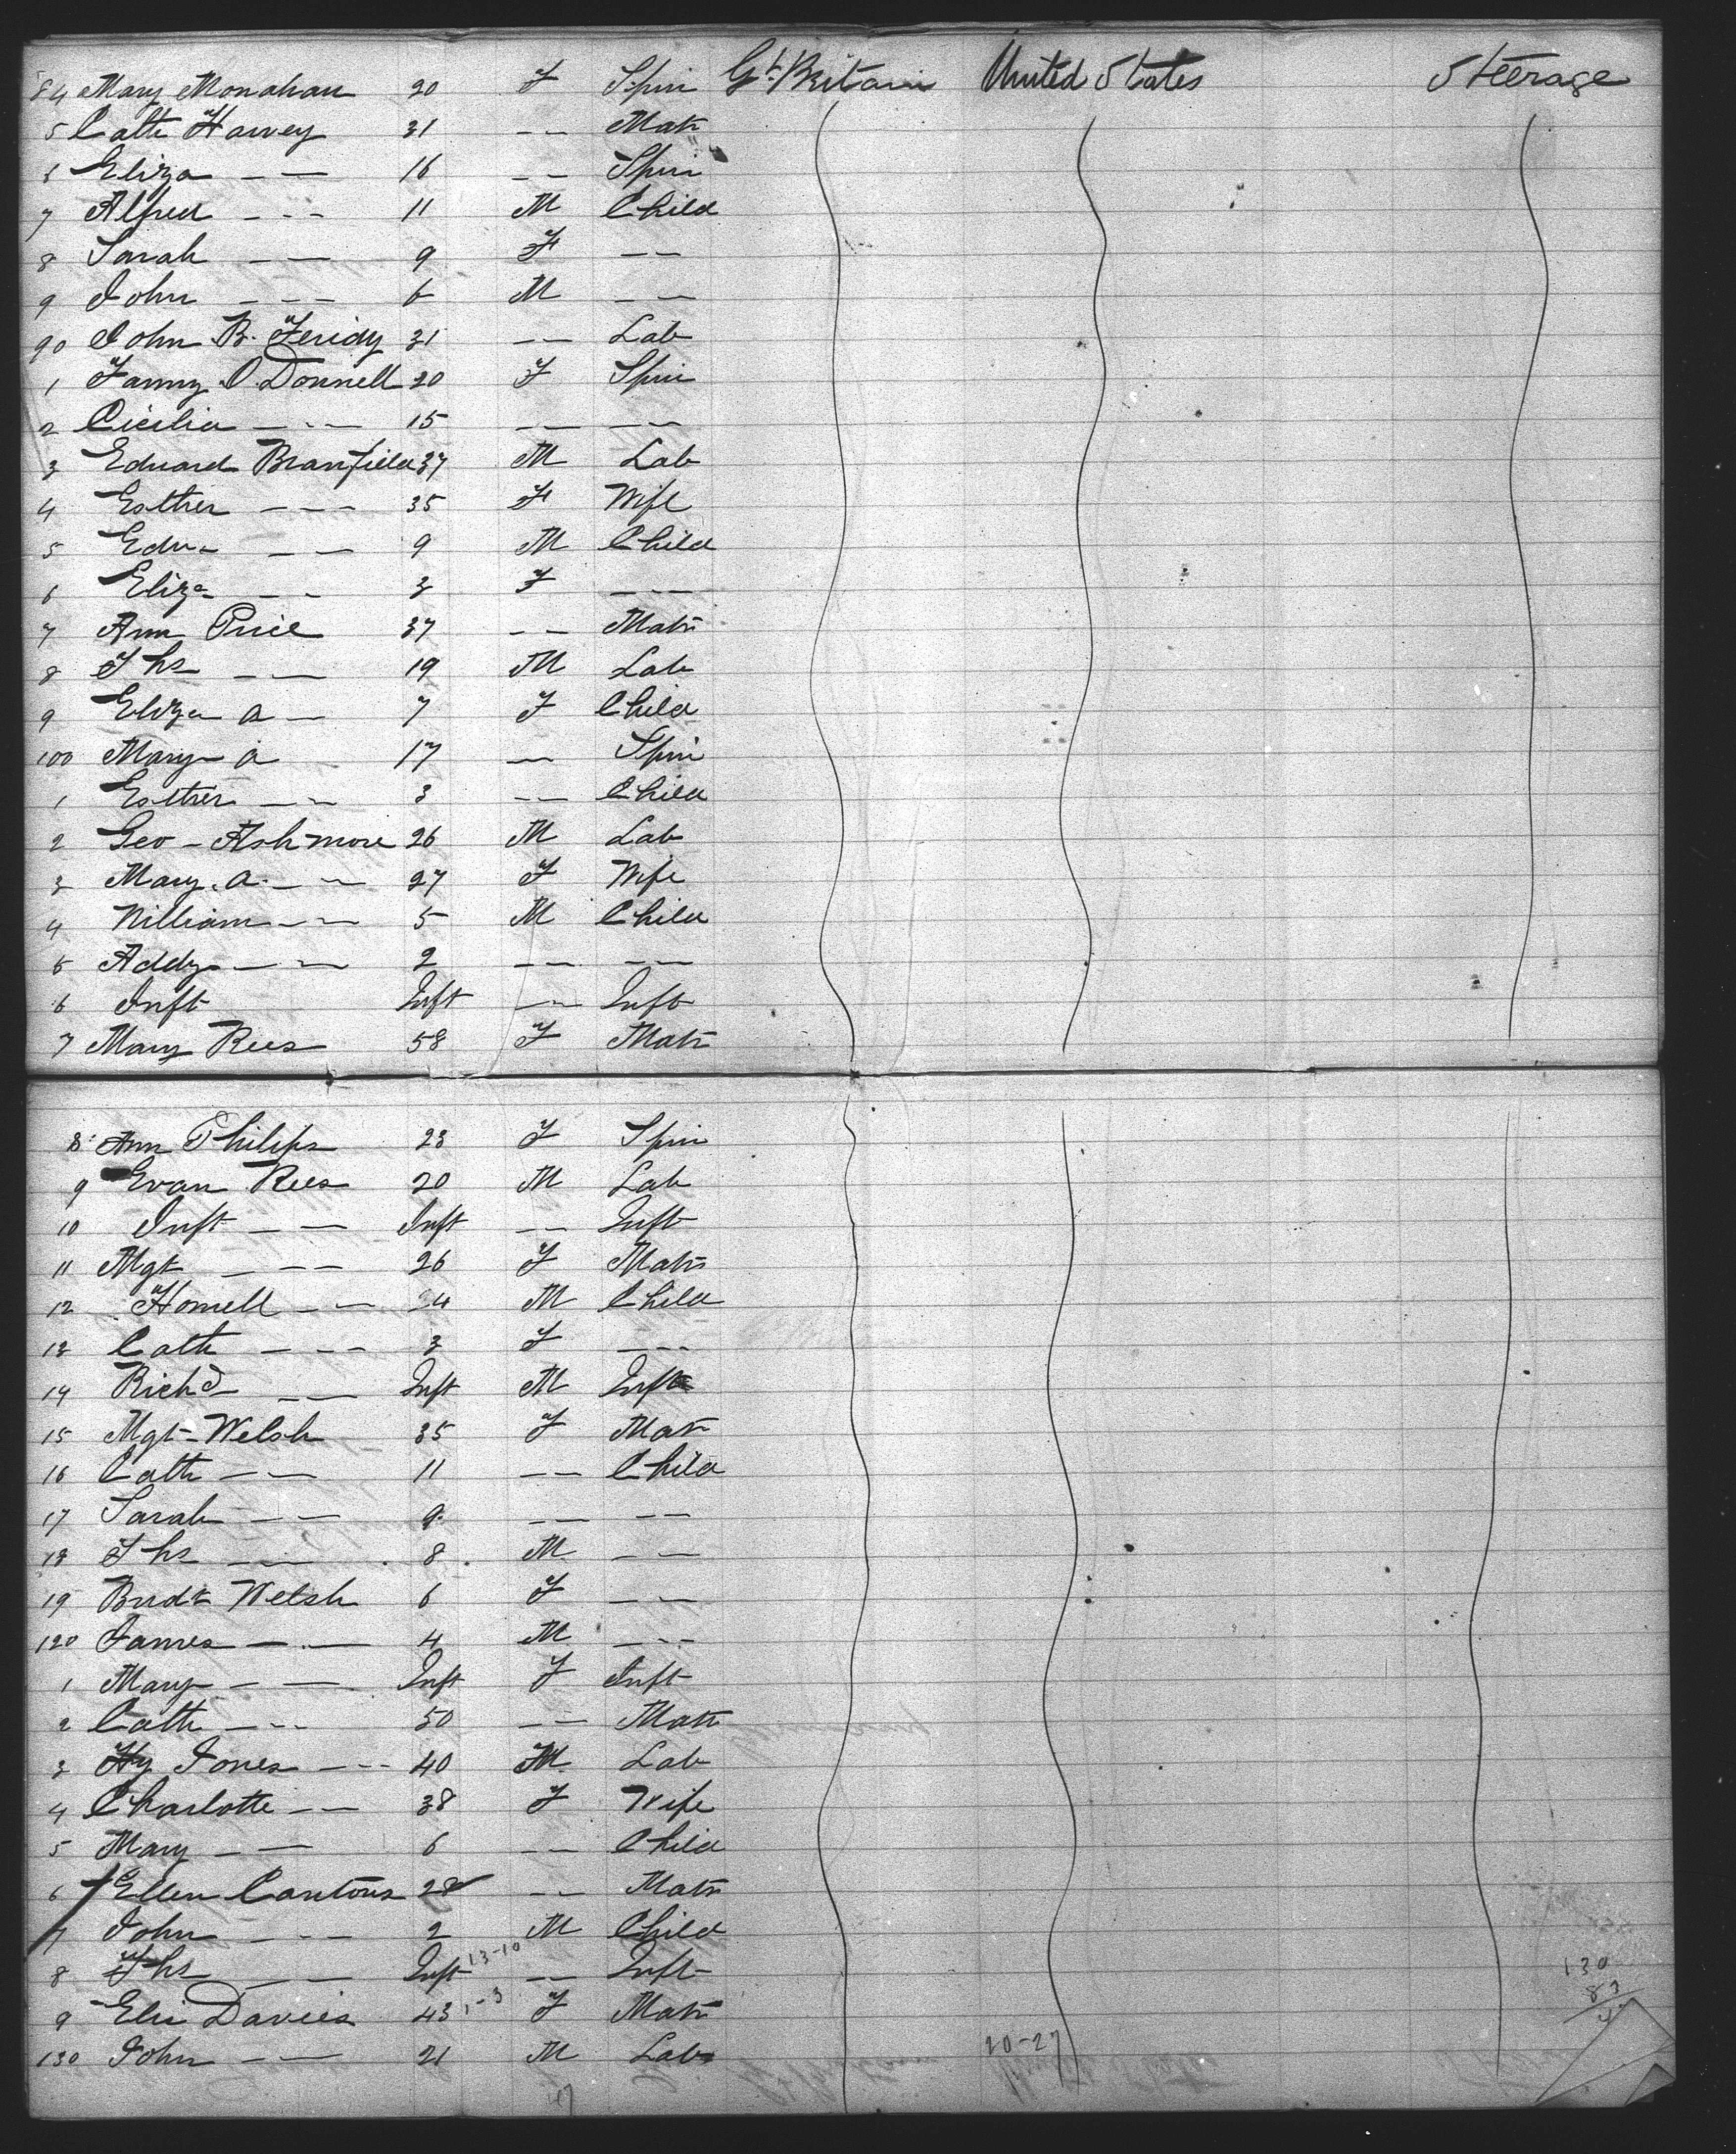 84 Mary Monahan 20 F Spin Gt. Britain United States Steerage
5 Cath Harvey 31 -- Matr
6 Eliza -- -- 16 -- Spin
7 Alfred --- 11 M Child
8 Sarah -- 9 F --
9 John --- 6 M --
90 John B. 31 -- Lab
1 Fanny O. Donnell 20 F Spin
2 Cicilia --- 15 -- ---
3 Edward Branfield 37 M Lab
4 Esther --- 35 F Wife
5 Edw -- 9 M Child
6 Eliza -- 3 F ---
7 Ann Price 37 -- Matr
8 Ths -- 19 M Lab
9 Eliza a -- 7 F Child
100 Mary a 17 -- Spin
1 Esther -- 3 -- Child
2 Geo - Ashmore 26 M Lab
3 Mary. a. -- 27 F Wife
4 William -- 5 M Child
5 Addy -- 2 -- ---
6 Inft Inft -- Inft
7 Mary Rees 58 F Matr
8 Ann Philips 23 F Spin
9 Evan Rees 20 M Lab
10 Inft -- Inft -- Inft
11 Mgt --- 26 F Matr
12 Howell -- 24 M Child
13 Cath --- 3 F ---
14 Richd -- Inft M Inft
15 Mgt- Welsh 35 F Matr
16 Cath -- 11 -- Child
17 Sarah -- 9 -- --
18 Ths -- 8 M --
19 Bridt Welsh 6 F --
120 James -- 4 M ---
1 Mary -- Inft F Inft
2 Cath --- 50 -- Matr
3 Hy Jones --- 40 M Lab
4 Charlotte -- 38 F Wife
5 Mary -- 6 -- Child
6 Ellen Cantons 28 -- Matr
7 John --- 2 M Child
8 Ths -- Inft 13-10 -- Inft 130
9 Eliz Davies 43 1-3 F Matr 83
130 John -- 21 M Lab 20-27
47